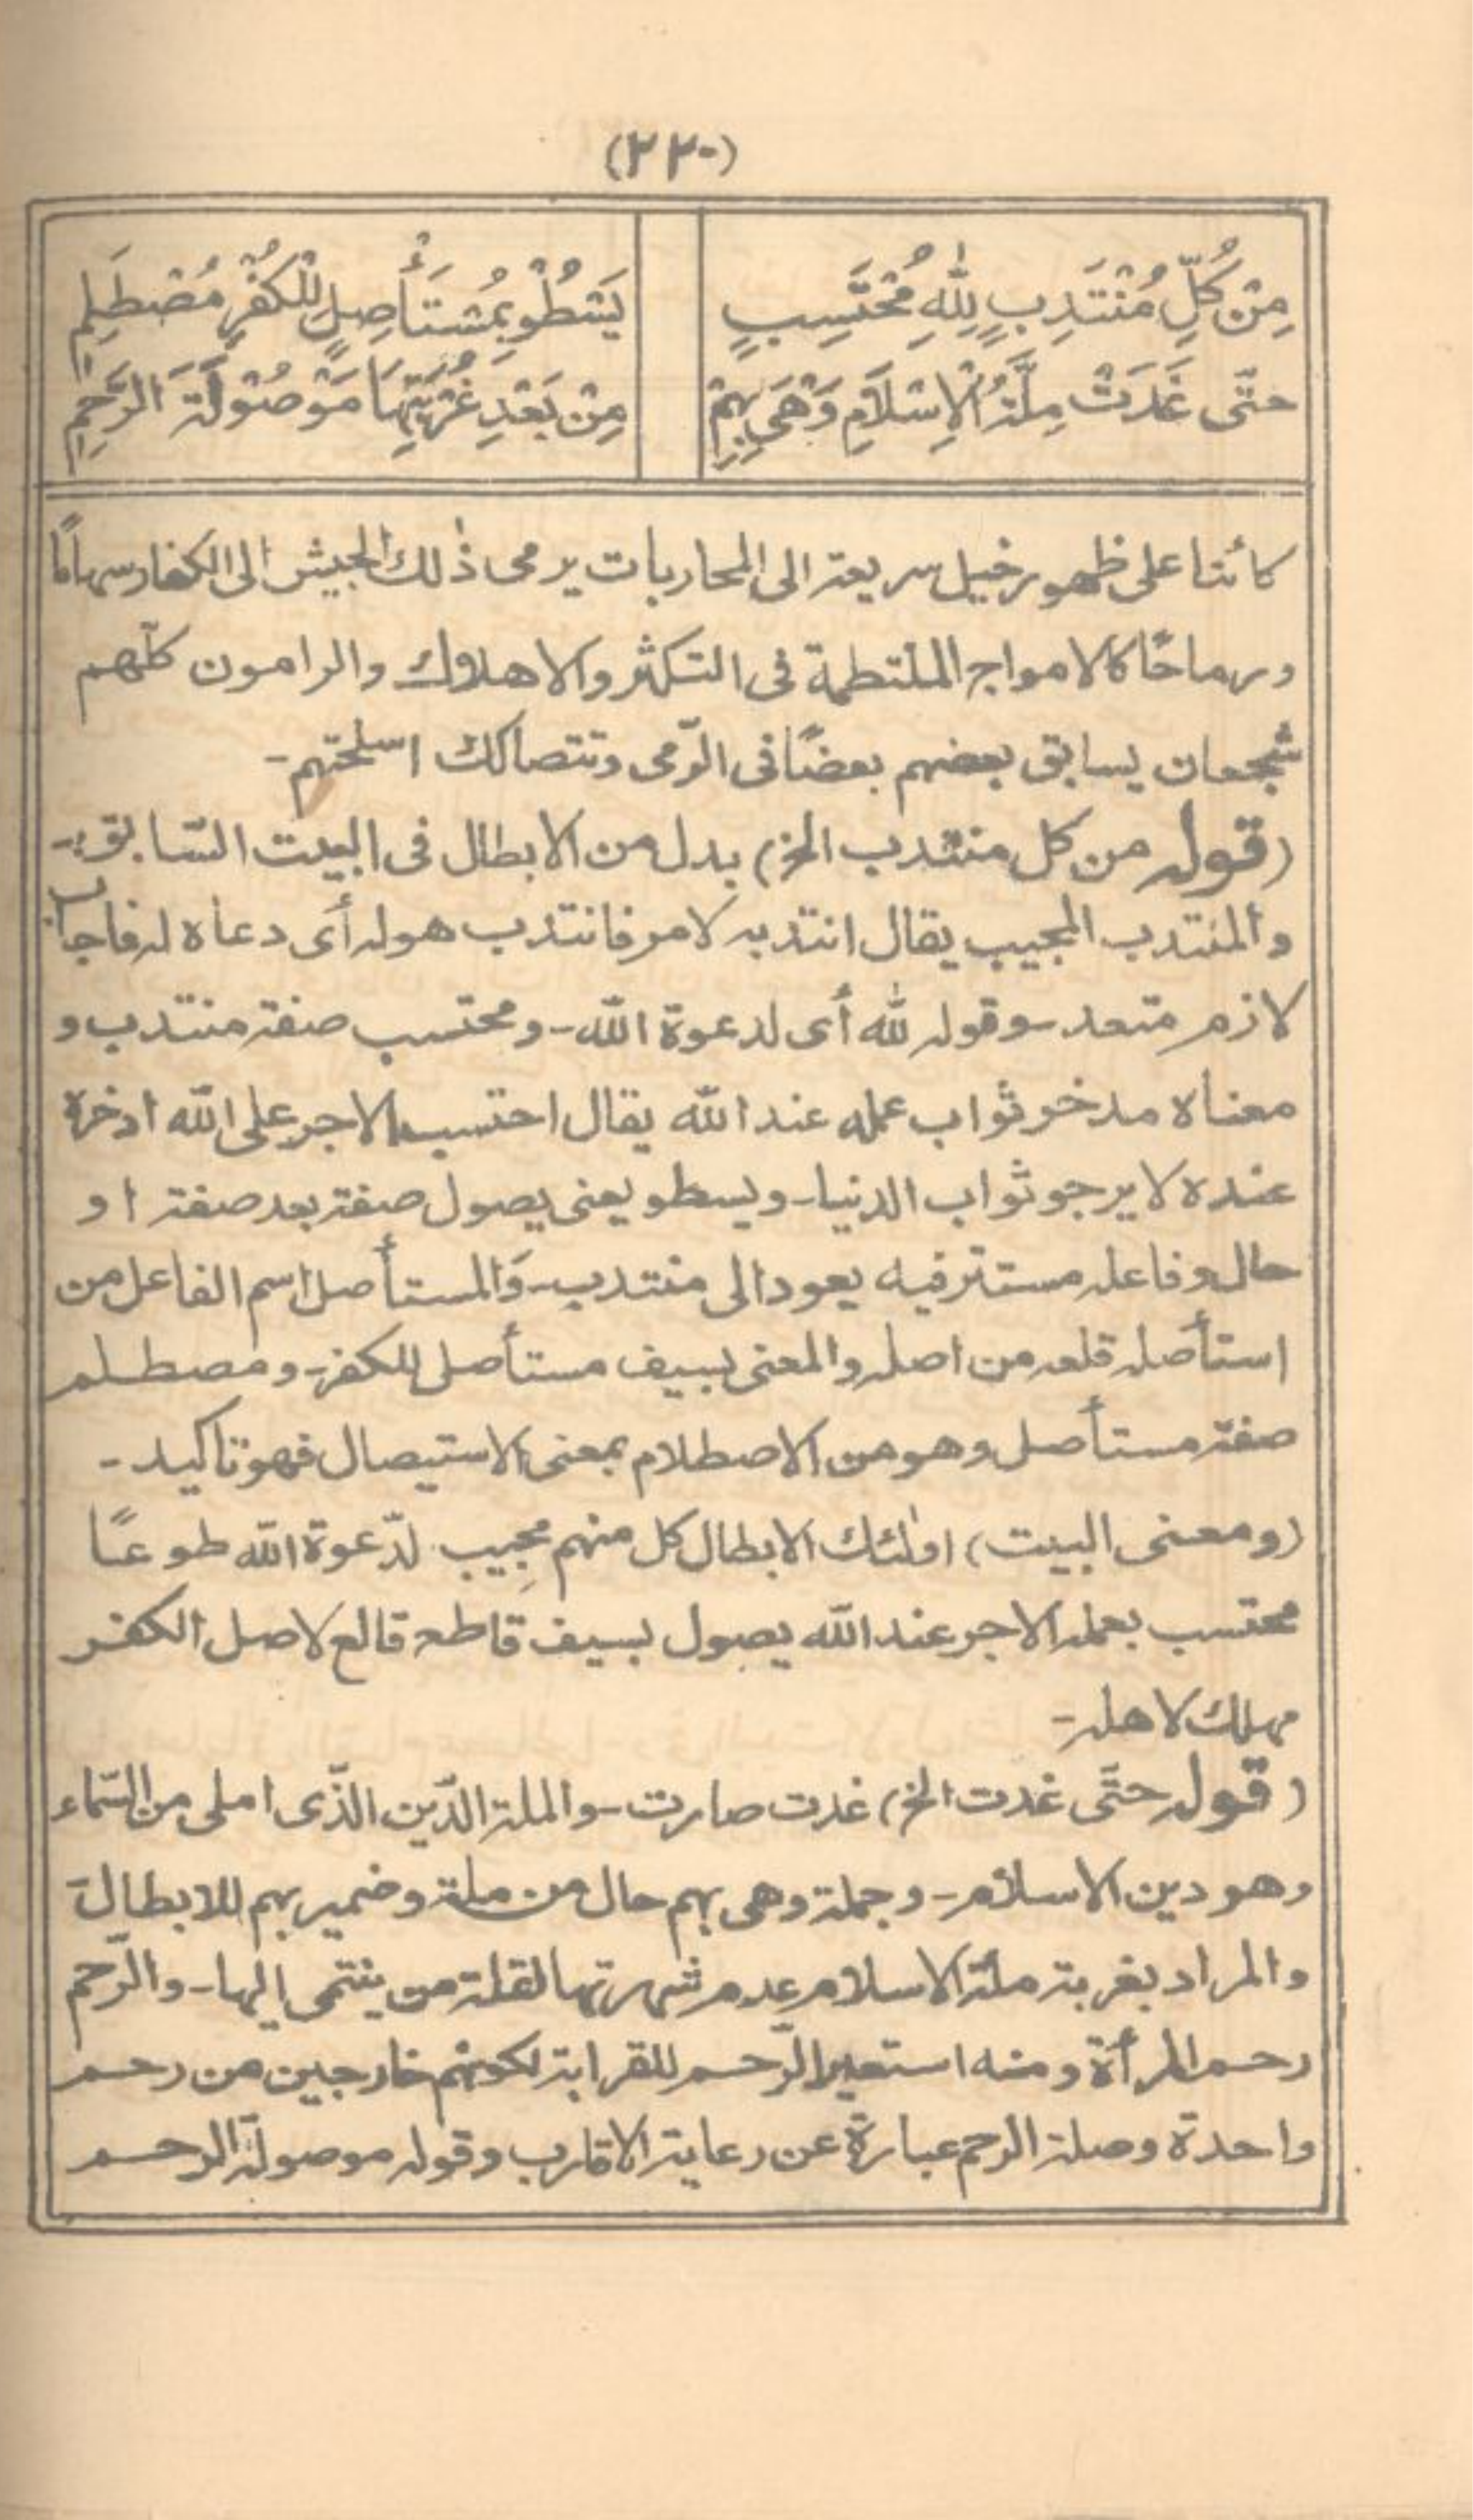 (٢٢٠)
مِنْ كُلِّ مُنْتَدِبٍ لِلّٰهِ مُحْتَسِبٍ يَسْطُوْ بِمُسْتَأْصِلٍ لِلْكُفْرِ مُصْطَلِمِ
حتَّى غَدَتْ مِلَّةُ الْاِسْلَامِ وَهْيَ بِهِمْ مِنْ بَعْدِ غُرْبَتِهَا مَوْصُوْلَةَ الرَّحِمِ
كائنا على ظهور خيل سريعة الى المحاربات يرمى ذٰلك الجيش الى الكفار سهامًا
ورماحًا كالامواج الملتطمة فى التكثر والاهلاك والرامون كلّهم
شجعان يسابق بعضهم بعضًا فى الرّمى وتتصاكك اسلحتهم-
(قوله من كل منتدب الخ) بدل من الابطال فى البيت السّابق-
والمنتدب المجيب يقال انتدبه لامر فانتدب هو له أى دعاه له فاجاب
لازم متعد-وقوله لله أى لدعوة الله-ومحتسب صفة منتدب و
معناه مدخر ثواب عمله عند الله يقال احتسب الاجر على الله ادخره
عنده لا يرجو ثواب الدنيا-ويسطو يعنى يصول صفة بعد صفة او
حال وفاعله مستتر فيه يعود الى منتدب-وَالمستأصل اسم الفاعل من
استأصله قلعه من اصله والمعنى بسيف مستأصل للكفر-ومصطلم
صفة مستأصل وهو من الاصطلام بمعنى الاستيصال فهو تاكيد-
(ومعنى البيت) اولٰئك الابطال كل منهم مجِيب لدّعوة الله طوعًا
محتسب بعمله الاجر عند الله يصول بسيف قاطع قالع لاصل الكفر
مهلك لاهله-
(قوله حتَّى غدت الخ) غدت صارت-والملة الدّين الذّى املى من السّماء
وهو دين الاسلام-وجملة وهى بهم حال من ملة وضمير بهم للابطال
والمراد بغربة ملة الاسلام عدم شهرتها لقلة من ينتمى اليها-والرّحم
رحم المرأة ومنه استعير الرّحم للقرابة لكونهم خارجين من رحم
واحدة وصلة الرحم عبارة عن رعاية الاقارب وقوله موصولة الرحم